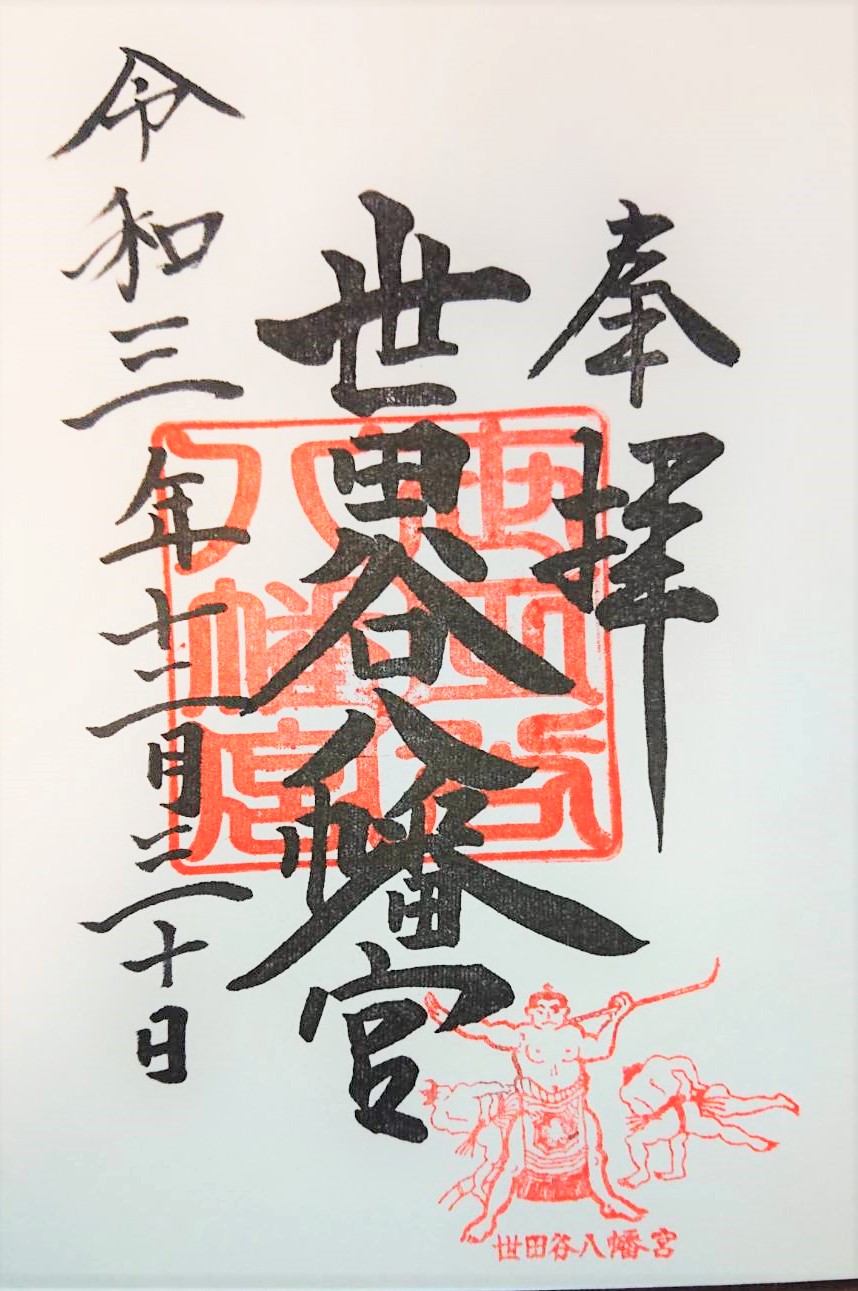 奉拝
世田谷八幡宮
令和三年十二月三十日
世田谷
八幡宮
世田谷八幡宮